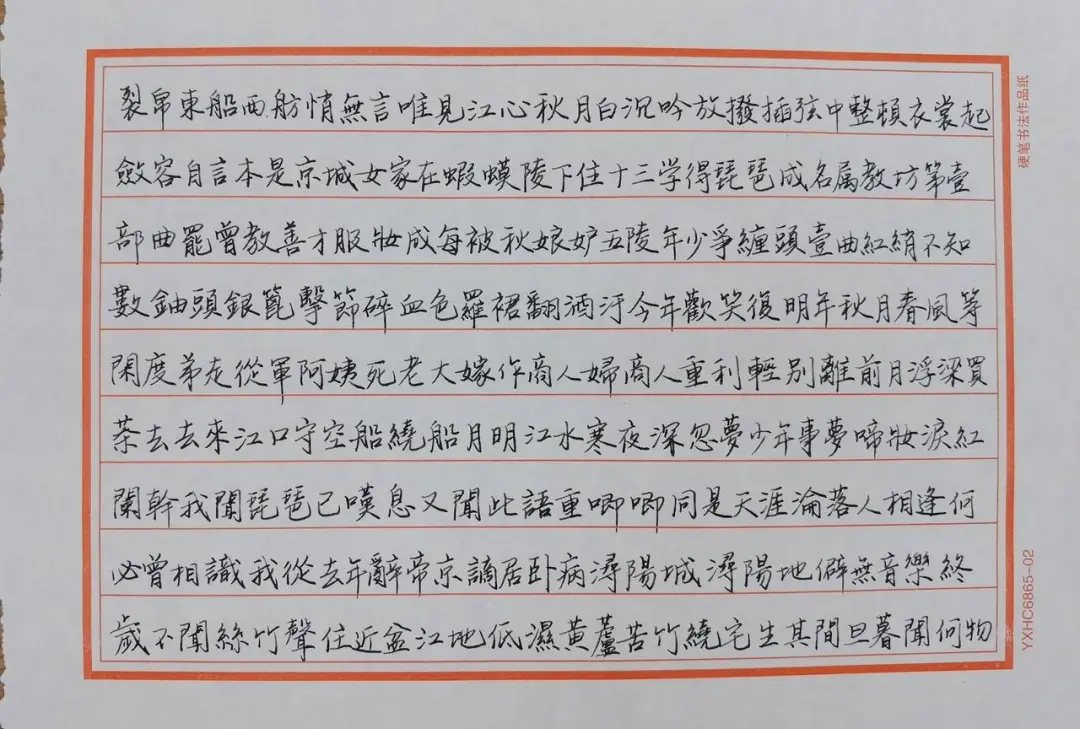 裂帛東船西舫悄無言唯見江心秋月白沉吟放撥插弦中整頓衣裳起
斂容自言本是京城女家在蝦蟆陵下住十三学得琵琶成名属教坊第壹
部曲罷曾教善才服妝成每被秋娘妒五陵年少爭纏頭壹曲紅綃不知
數鈿頭銀篦擊節碎血色羅裙翻酒汙今年歡笑復明年秋月春風等
閑度弟走從軍阿姨死老大嫁作商人婦商人重利輕別離前月浮梁買
茶去去來江口守空船繞船月明江水寒夜深忽夢少年事夢啼妝淚紅
闌幹我聞琵琶已嘆息又聞此語重唧唧同是天涯淪落人相逢何
必曾相識我從去年辭帝京謫居卧病潯陽城潯陽地僻無音樂終
歲不聞絲竹聲住近盆江地低濕黃蘆苦竹繞宅生其間旦暮聞何物
硬笔书法作品纸
YXHC6865-02